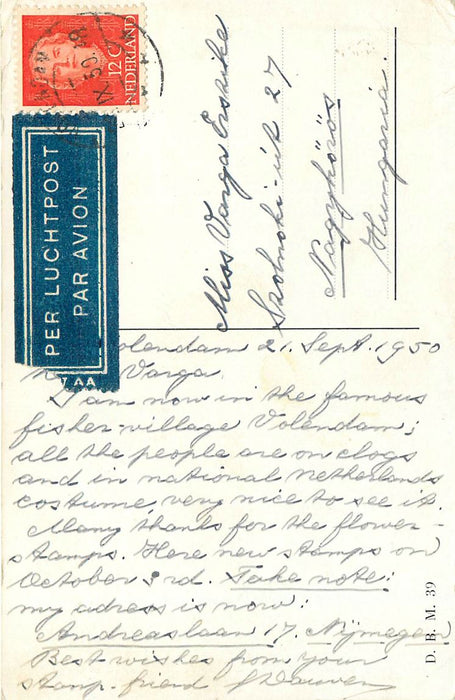 12 C
NEDERLAND
PER LUCHTPOST
PAR AVION
Miss Varga Erzsike
Szolnoki-út 27
Nagykőrös
Hungaria.
Volendam 21. Sept. 1950
Varga.
I am now in the famous
fisher-village Volendam;
all the people are on clogs
and in national Netherlands
costume, very nice to see it.
Many thanks for the flower-
stamps. Here new stamps on
October 3rd. Take note:
my adress is now:
Andreaslaan 17, Nijmegen
Best wishes from your
stamp-friend
D. B. M. 39